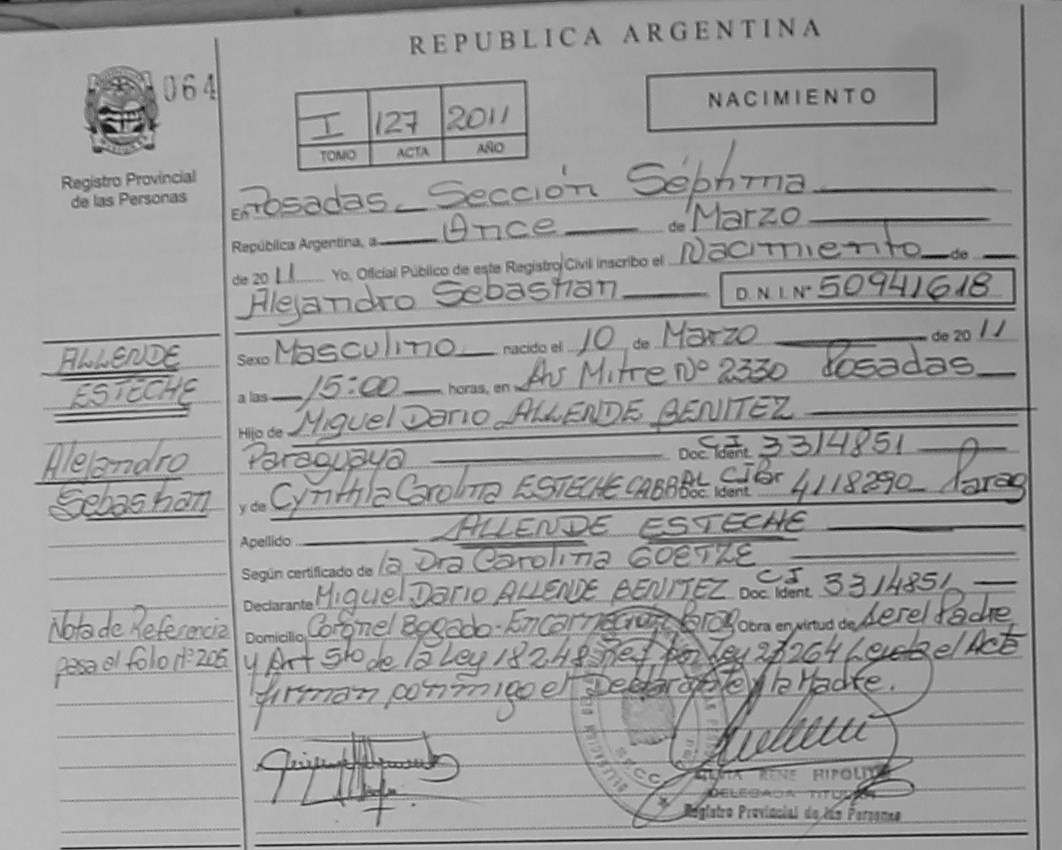 REPUBLICA ARGENTINA
064
NACIMIENTO
I 127 2011
TOMO ACTA AÑO
Registro Provincial
de las Personas
En Posadas Sección Séptima
República Argentina, a Once de Marzo
de 2011 Yo, Oficial Público de este Registro Civil inscribo el Nacimiento de
Alejandro Sebastian D.N.I. Nº 50941618
ALLENDE
ESTECHE
Alejandro
Sebastian
Sexo Masculino nacido el 10 de Marzo de 2011
a las 15:00 horas, en Av Mitre Nº 2330 Posadas
Hijo de Miguel Dario ALLENDE BENITEZ
Paraguaya Doc. Ident. C.I 3314851
y de Cynthia Carolina ESTECHE CABRAL Doc. Ident. 4118290 Parag
Apellido ALLENDE ESTECHE
Según certificado de la Dra Carolina GOETZE
Declarante Miguel Dario ALLENDE BENITEZ Doc. Ident. C I 3314851
Nota de Referencia
pasa el folio Nº 205
Domicilio Coronel Bogado - Encarnacion Parag Obra en virtud de ser el Padre
y Art 5to de la Ley 18248 por Ley 26264 el Acta
firman conmigo el Declarante y la Madre.
RENE HIPOLITO
DELEGADA TITULAR
Registro Provincial de las Personas